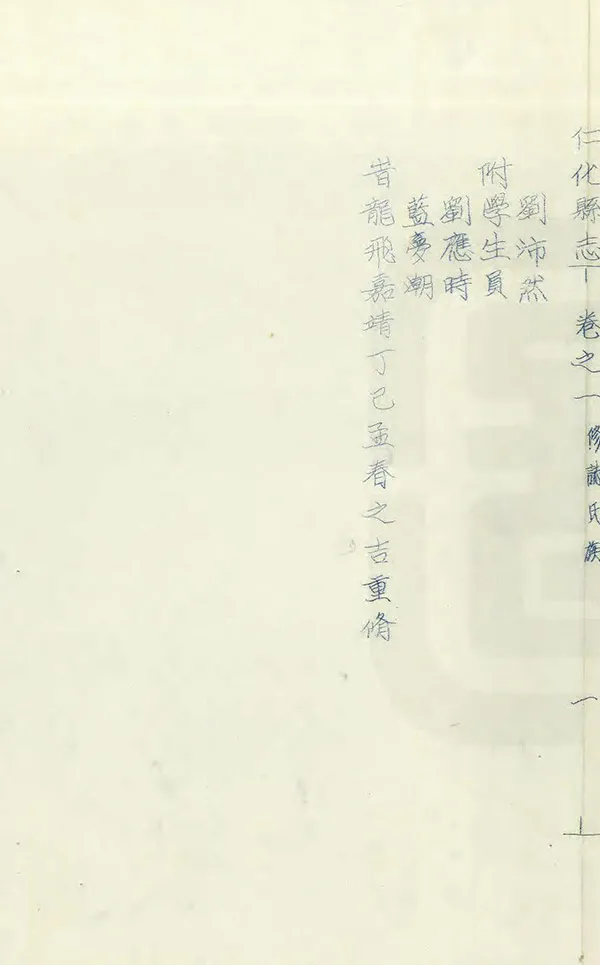 仁化縣志 卷之一 修誌氏族 一
劉沛然
附學生員
劉應時
藍夢潮
昔龍飛嘉靖丁巳孟春之吉重脩